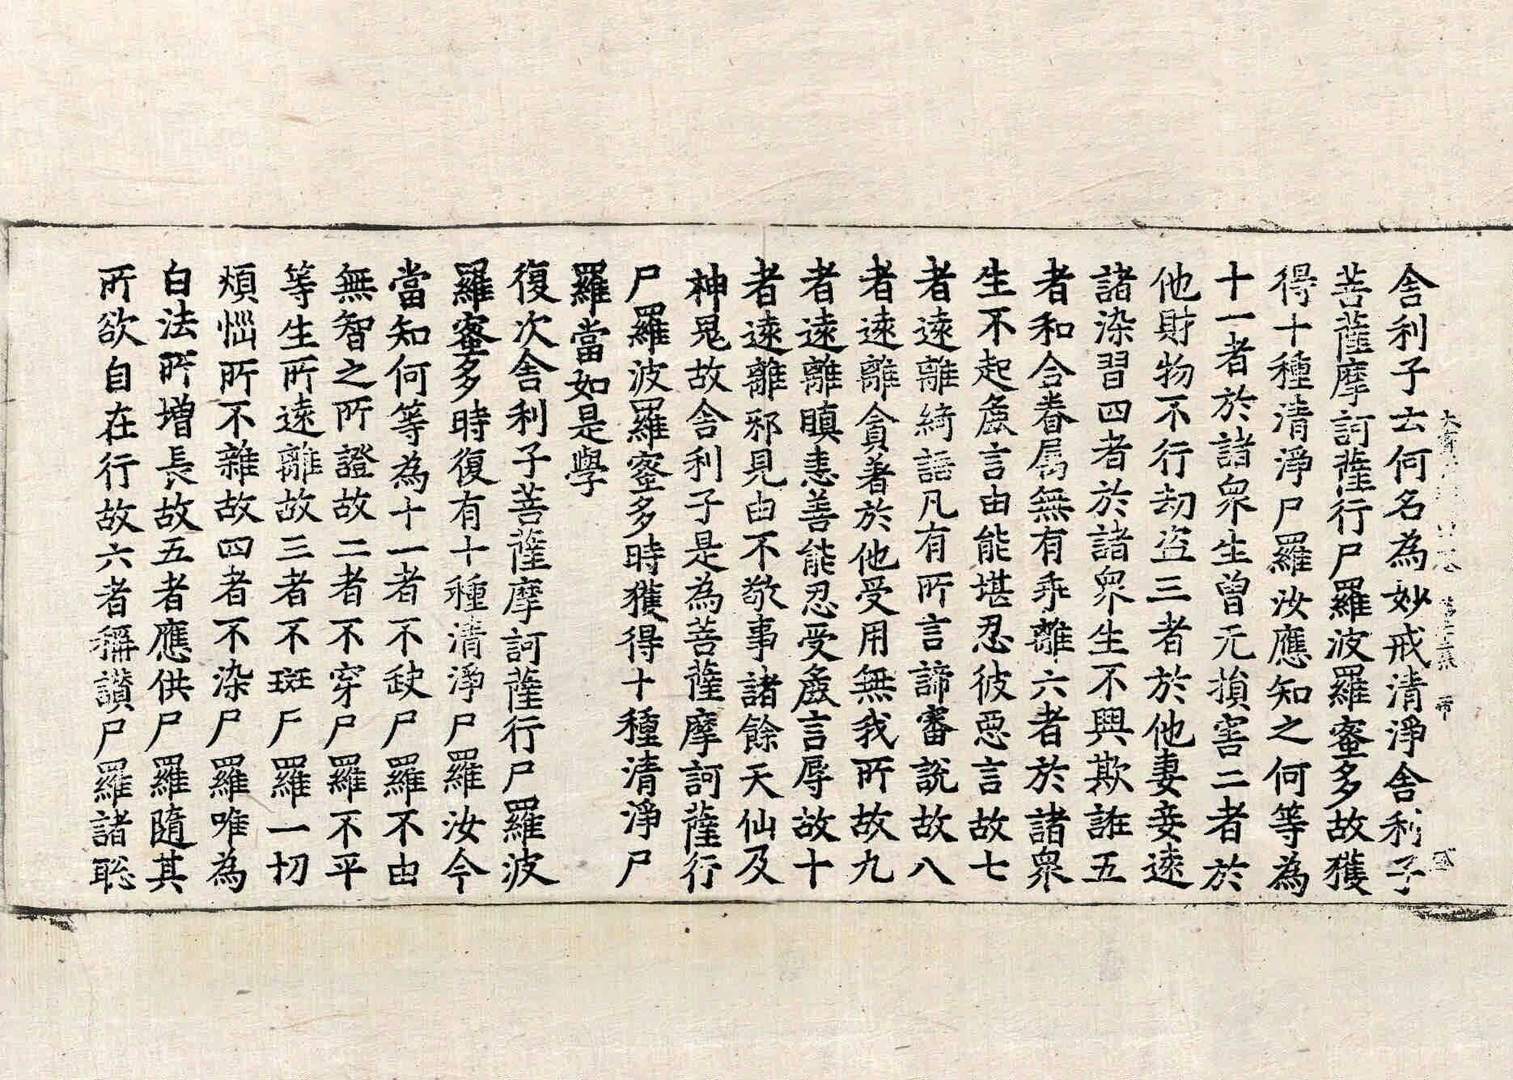 舍利子云何名為妙戒清淨舍利子
菩薩摩訶薩行尸羅波羅蜜多故獲
得十種清淨尸羅汝應知之何等為
十一者於諸眾生曾无損害二者於
他財物不行劫盜三者於他妻妾遠
諸染習四者於諸眾生不興欺誑五
者和合眷属無有乖離六者於諸眾
生不起麁言由能堪忍彼惡言故七
者遠離綺語凡有所言諦審說故八
者遠離貪著於他受用無我所故九
者遠離瞋恚善能忍受麁言辱故十
者遠離邪見由不敬事諸餘天仙及
神鬼故舍利子是為菩薩摩訶薩行
尸羅波羅蜜多時獲得十種清淨尸
羅當如是學
復次舍利子菩薩摩訶薩行尸羅波
羅蜜多時復有十種清淨尸羅汝今
當知何等為十一者不缺尸羅不由
無智之所證故二者不穿尸羅不平
等生所遠離故三者不斑尸羅一切
煩惱所不雜故四者不染尸羅唯為
白法所增長故五者應供尸羅隨其
所欲自在行故六者稱讃尸羅諸聡